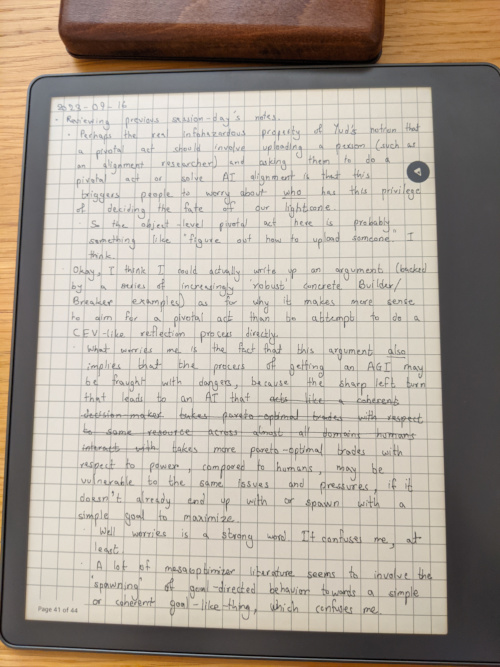 2023-09-16
· Reviewing previous session-day's notes.
· Perhaps the real infohazardous property of Yud's notion that
a pivotal act should involve uploading a person (such as
an alignment researcher) and asking them to do a
pivotal act or solve AI alignment is that this
triggers people to worry about who has this privilege
of deciding the fate of our lightcone.
· So the object-level pivotal act here is probably
something like "figure out how to upload someone." I
think.
· Okay, I think I could actually write up an argument (backed
by a series of increasingly 'robust' concrete Builder/
Breaker examples) as for why it makes more sense
to aim for a pivotal act than to attempt to do a
CEV-like reflection process directly.
· What worries me is the fact that this argument also
implies that the process of getting an AGI may
be fraught with dangers, because the sharp left turn
that leads to an AI that acts like a coherent
decision maker takes pareto-optimal trades with respect
to some resource across almost all domains humans
interact with takes more pareto-optimal trades with
respect to power, compared to humans, may be
vulnerable to the same issues and pressures, if it
doesn't already end up with or spawn with a
simple goal to maximize.
· Well worries is a strong word. It confuses me, at
least.
· A lot of mesaoptimizer literature seems to involve the
"spawning" of goal-directed behavior towards a simple
or coherent goal-like-thing, which confuses me.
Page 41 of 44